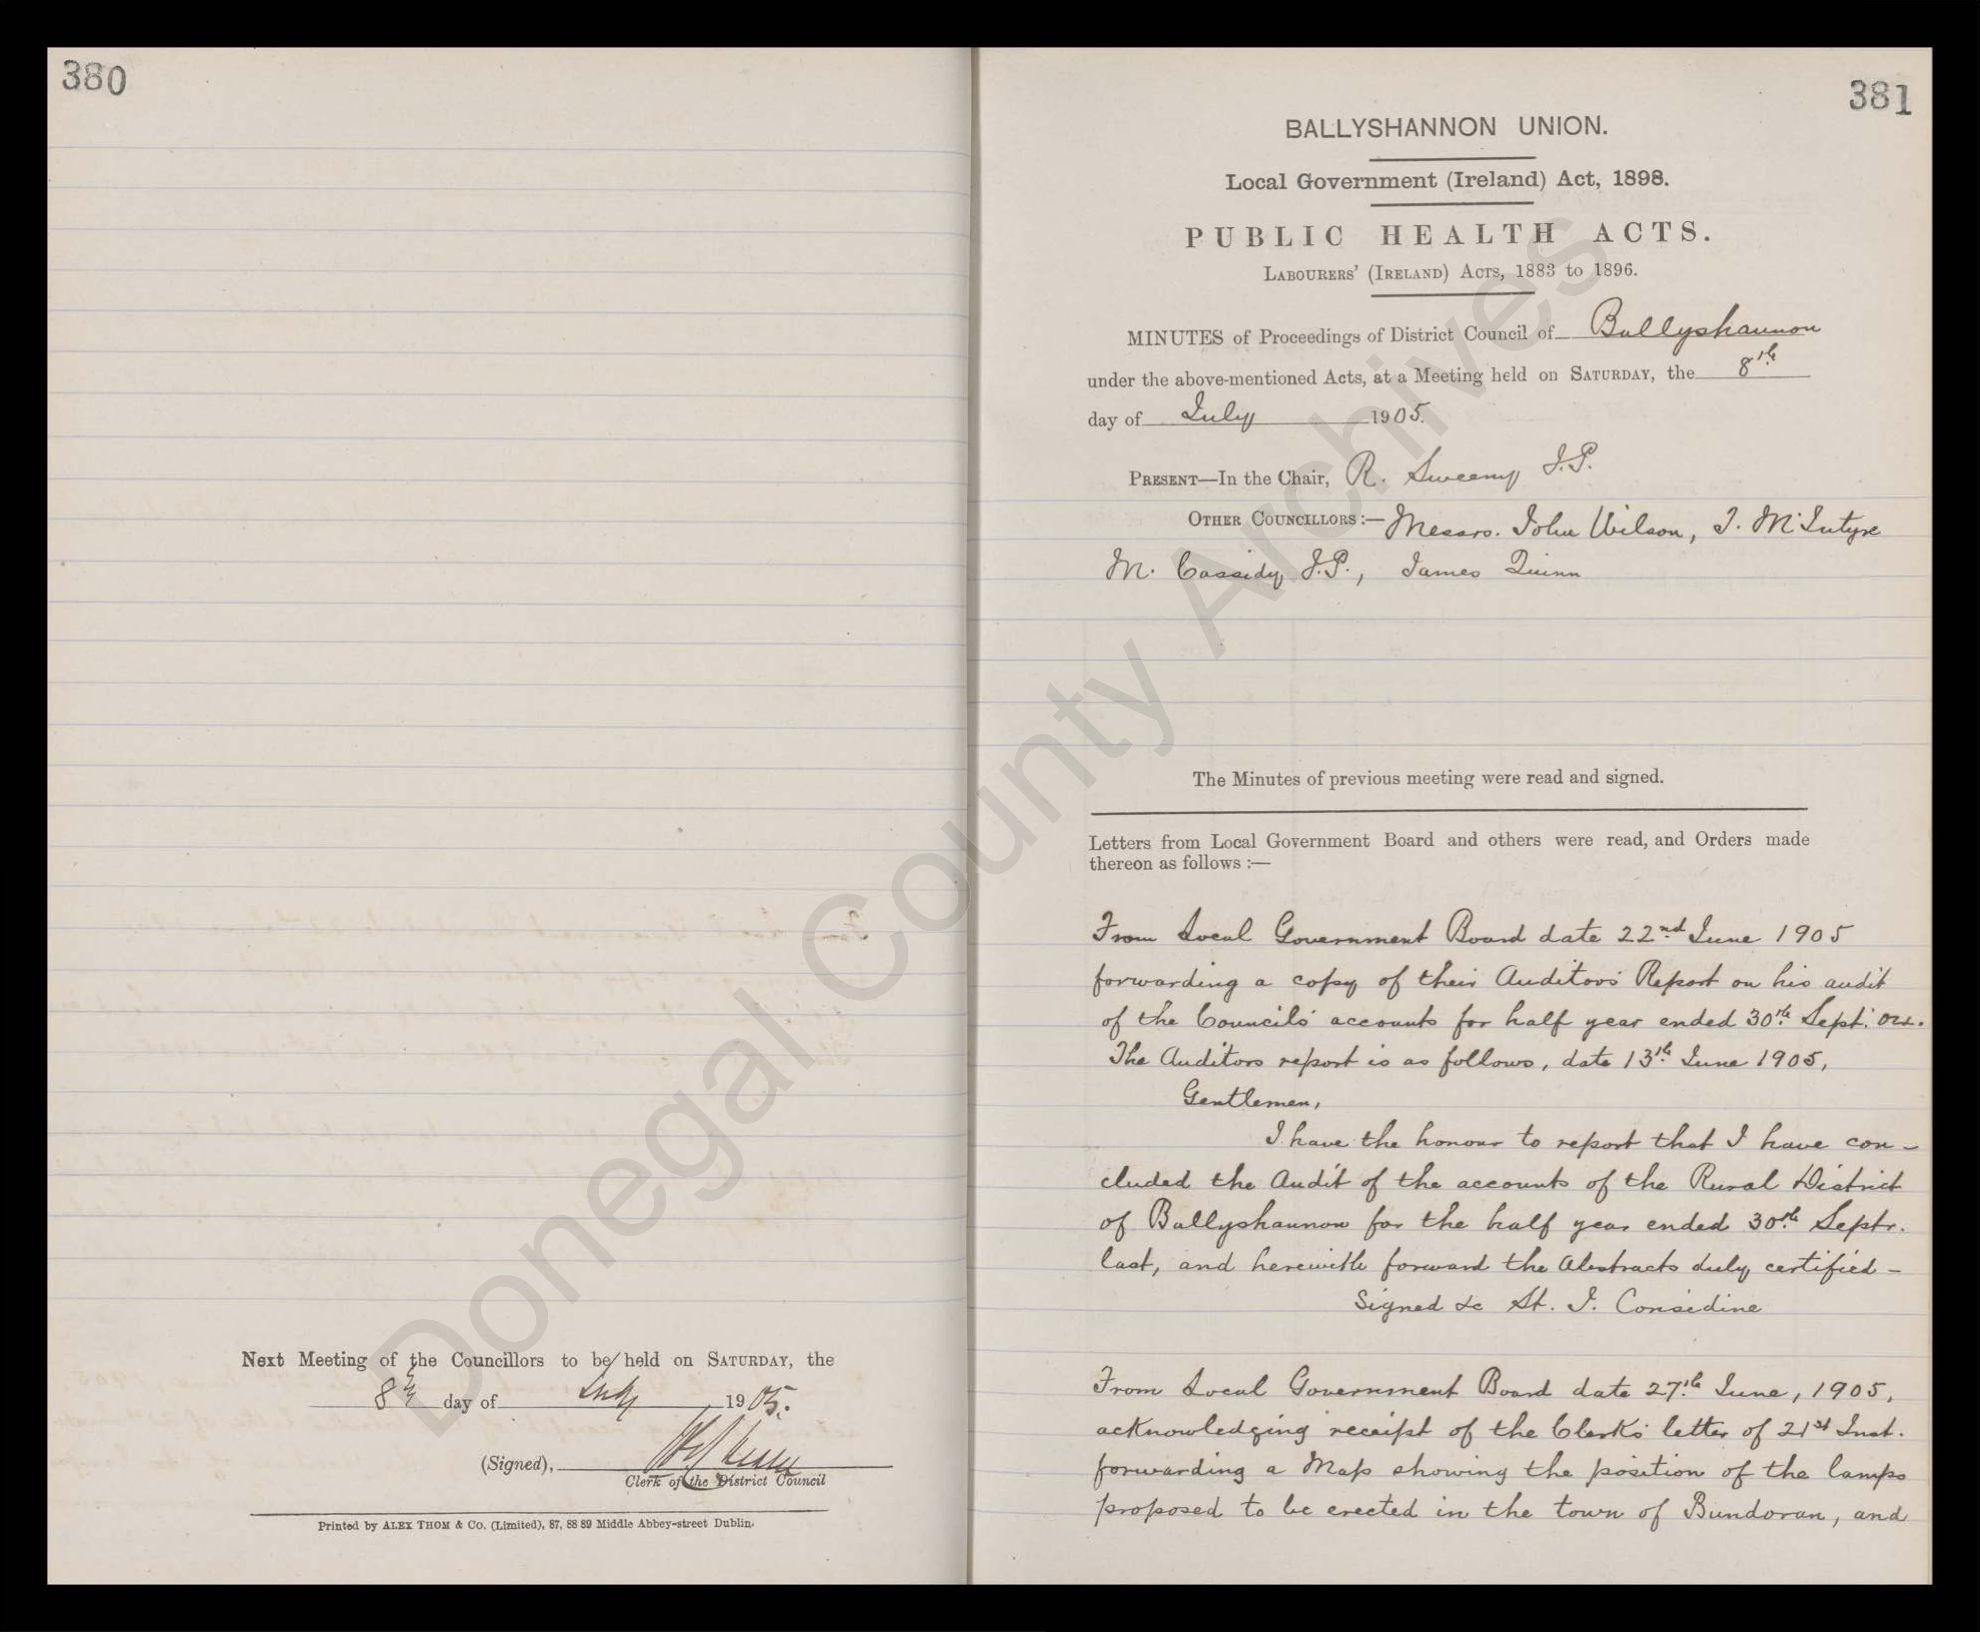 380
Next Meeting of the Councillors to be held on SATURDAY, the
8th day of July 1905.
(Signed),
Clerk of the District Council
Printed by ALEX THOM & Co. (Limited), 87, 88 89 Middle Abbey-street Dublin.
381
BALLYSHANNON UNION.
Local Government (Ireland) Act, 1898.
PUBLIC HEALTH ACTS.
LABOURERS' (IRELAND) ACTS, 1883 to 1896.
MINUTES of Proceedings of District Council of Ballyshannon
under the above-mentioned Acts, at a Meeting held on SATURDAY, the 8th
day of July 1905.
PRESENT—In the Chair, R. Sweeny J.P.
OTHER COUNCILLORS:— Messrs. John Wilson, T. McIntyre
M. Cassidy J.P., James Quinn
The Minutes of previous meeting were read and signed.
Letters from Local Government Board and others were read, and Orders made
thereon as follows :—
From Local Government Board date 22nd June 1905
forwarding a copy of their Auditors' Report on his audit
of the Councils' accounts for half year ended 30th Sept.
The Auditors report is as follows, date 13th June 1905,
Gentlemen,
I have the honour to report that I have con-
cluded the Audit of the accounts of the Rural District
of Ballyshannon for the half year ended 30th Septr.
last, and herewith forward the Abstracts duly certified -
Signed &c St. J. Considine
From Local Government Board date 27th June, 1905,
acknowledging receipt of the Clerk's letter of 21st Inst.
forwarding a Map showing the position of the lamps
proposed to be erected in the town of Bundoran, and
Donegal County Archives